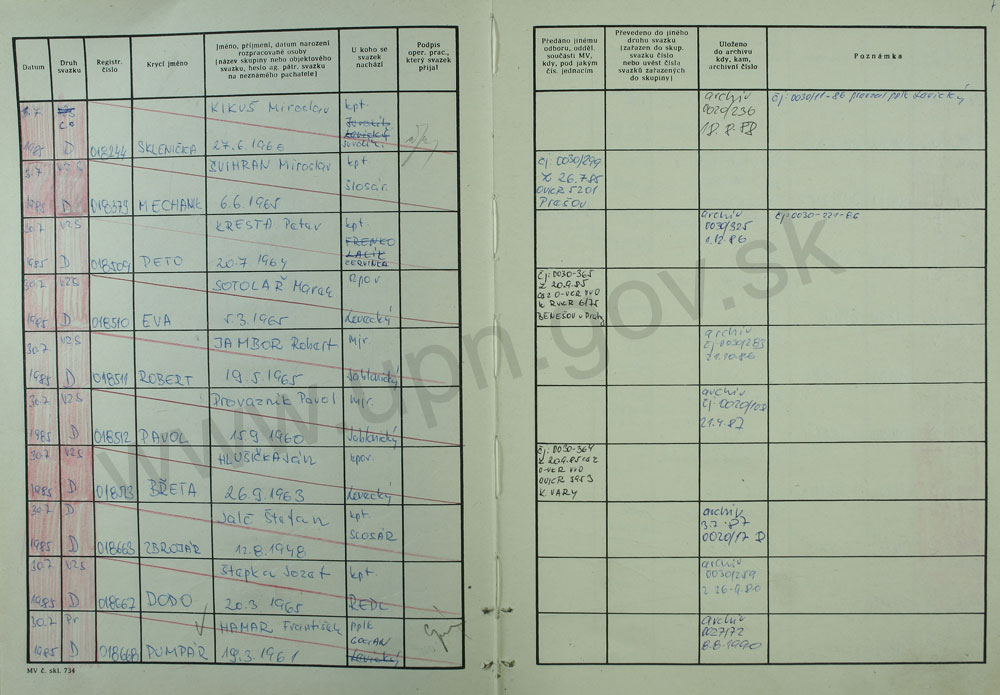 Datum
Druh svazku
Registr. číslo
Krycí jméno
Jméno, příjmení, datum narození
rozpracované osoby
(název skupiny nebo objektového
svazku, heslo ag. pátr. svazku
na neznámého pachatele)
U koho se
svazek
nachází
Podpis
oper. prac.,
který svazek
přijal
Předáno jinému
odboru, odděl.
součásti MV,
kdy, pod jakým
čís. jednacím
Převedeno do jiného
druhu svazku
(zařazen do skup.
svazku číslo
nebo uvést čísla
svazků zařazených
do skupiny)
Uloženo
do archivu
kdy, kam,
archivní číslo
Poznámka
KIKUŠ Miroslav kpt archiv čj: 0030/11-86 převzal pplk Lovický
0020/236
18.8.88
1985 D 018244 SKLENIČKA 27.6.1966
ŠVIHRAN Miroslav kpt čj: 0030/299
Šlosár. Z 26.7.85
OVKR 5201
1985 D 018373 MECHANIK 6.6.1965 Prešov
30.7 VZS KRESTA Peter kpt archiv čj 0030-221-86
FRENKO 0030/325
LALÍK 1.12.86
1985 D 018509 PETO 20.7 1964 ČERVINKA
30.7 VZS SOTOLAŘ Marek npor čj: 0030-365
Z 20.9.85
K RVKR 6/75
1985 D 018510 EVA 5.3.1965 Levecký BENEŠOV u Prahy
30.7 VZS JAMBOR Robert mjr. archiv
čj 0030/283
21.10.86
1985 D 018511 ROBERT 19.5.1965 Jablonický
30.7 VZS Provazník Pavol mjr. archiv
21.4.87
1985 D 018512 PAVOL 15.9 1960 Jablonický
30.7 VZS HLUŠIČKA Ján npor. čj: 0030-364
OVKR 5953
1985 D 018513 BŘETA 26.9 1963 Levecký K. VARY
30.7 Jalč Štefan kpt archiv
SLOSÁR 3.7.87
1985 D 018663 ZBROJÁR 12.8.1948 0020/17 D
30.7 VZS Stapka Jozef kpt. archiv
0030/259
1985 D 018667 DODO 20.3 1965 REDL 2.26.9.86
30.7 Pr HAMAR František pplk archiv
GOGIAN 0027/72
1985 D 018668 PUMPÁR 19.3.1961 Lovický 8.8.1990
MV č. skl. 734
www.upn.gov.sk